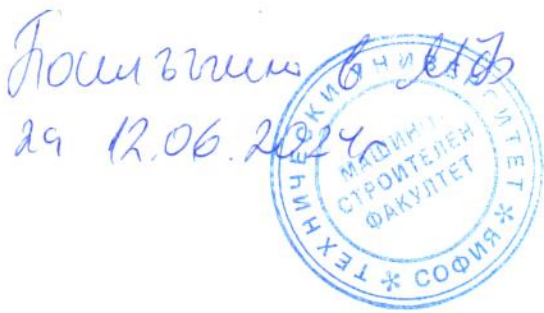 Постъпило в МФ
на 12.06.2024г.
ТЕХНИЧЕСКИ УНИВЕРСИТЕТ * СОФИЯ *
МАШИННО-
СТРОИТЕЛЕН
ФАКУЛТЕТ